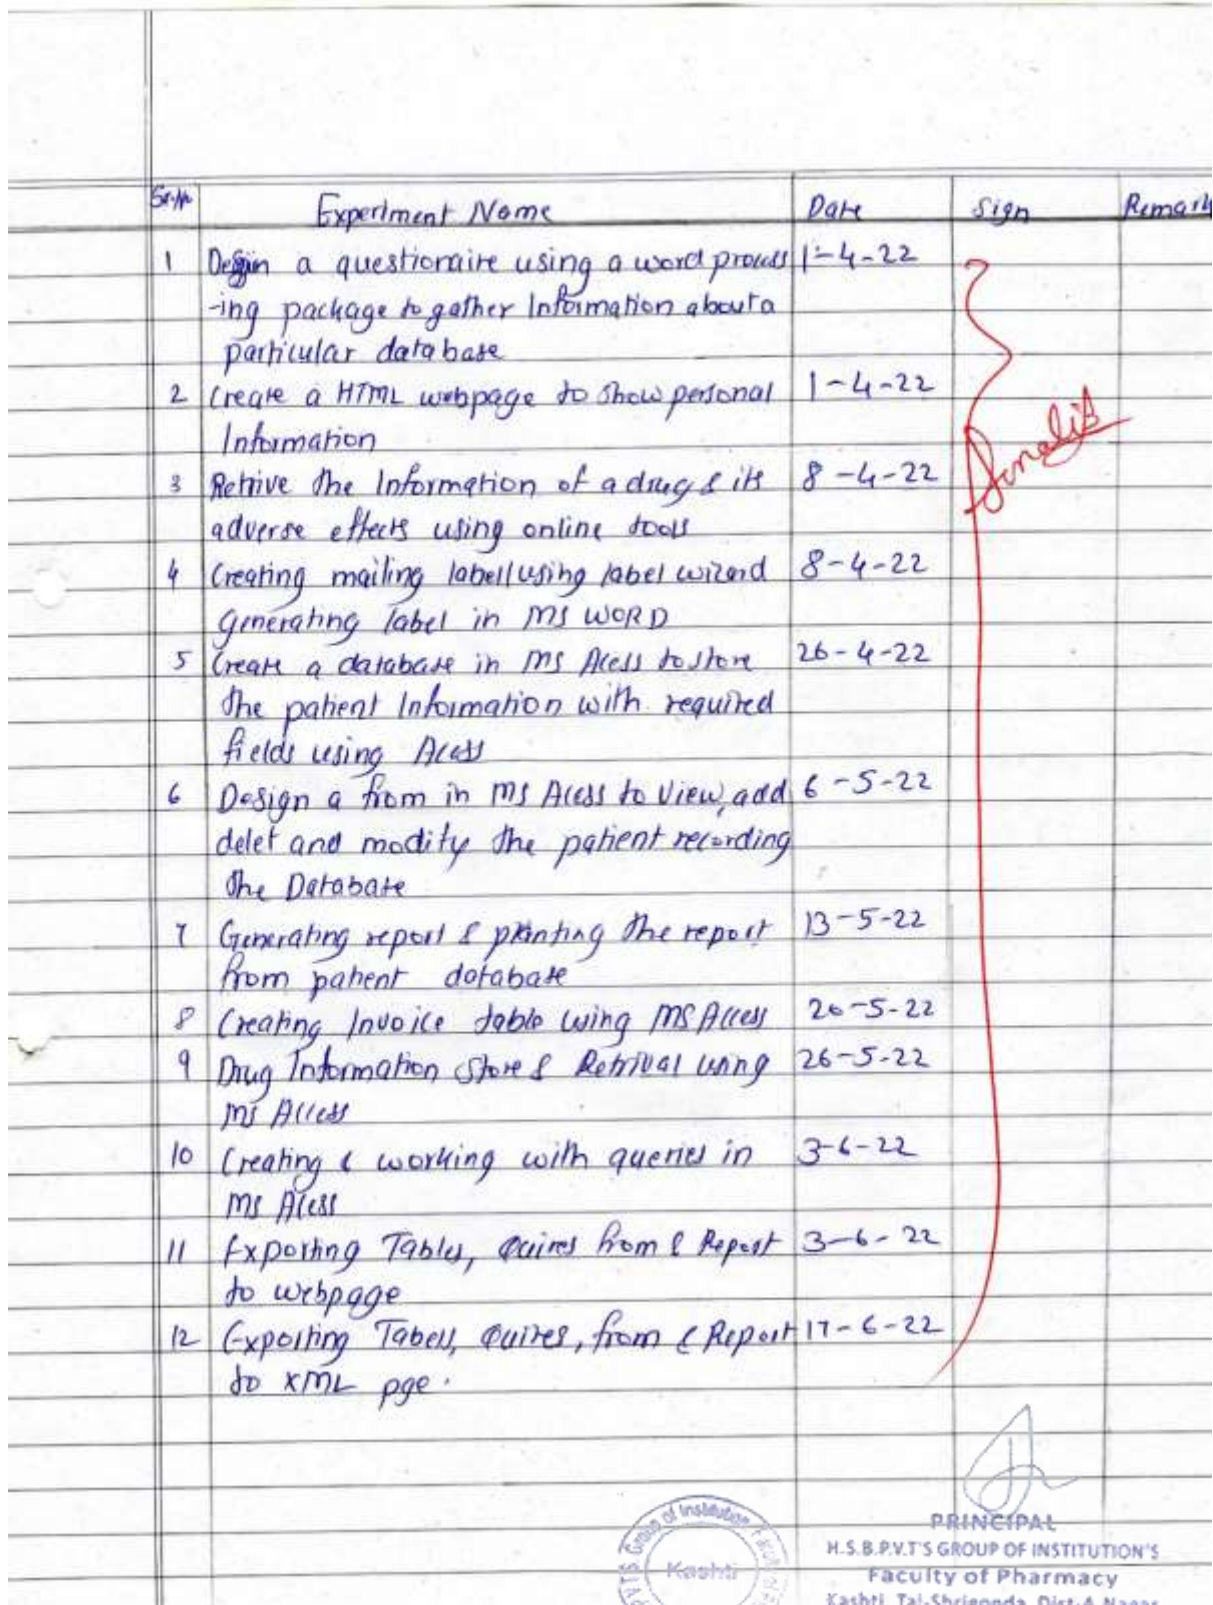 Sr.No Experiment Name Date Sign Remark
1 Design a questionaire using a word process 1-4-22
-ing package to gather Information about a
particular database
2 Create a HTML webpage to show personal 1-4-22
Information
3 Retrive the Information of a drug & its 8-4-22
adverse effects using online tools
4 Creating mailing labell using label wizard 8-4-22
generating label in MS WORD
5 Create a database in MS Acess to store 26-4-22
the patient Information with required
fields using Acess
6 Design a from in MS Acess to View, add 6-5-22
delet and modify the patient recording
the Database
7 Generating report & printing the report 13-5-22
from patient database
8 Creating Invoice table using MS Access 20-5-22
9 Drug Information Store & Retrival using 26-5-22
MS Access
10 Creating & working with queries in 3-6-22
MS Acess
11 Exporting Tables, Quires from & Report 3-6-22
to webpage
12 Exporting Tabels, Quires, from & Report 17-6-22
to XML pge.
PRINCIPAL
H.S.B.P.V.T'S GROUP OF INSTITUTION'S
Faculty of Pharmacy
Kashti, Tal-Shrigonda, Dist-A.Nagar
PVTS Group of Institution
Kashti